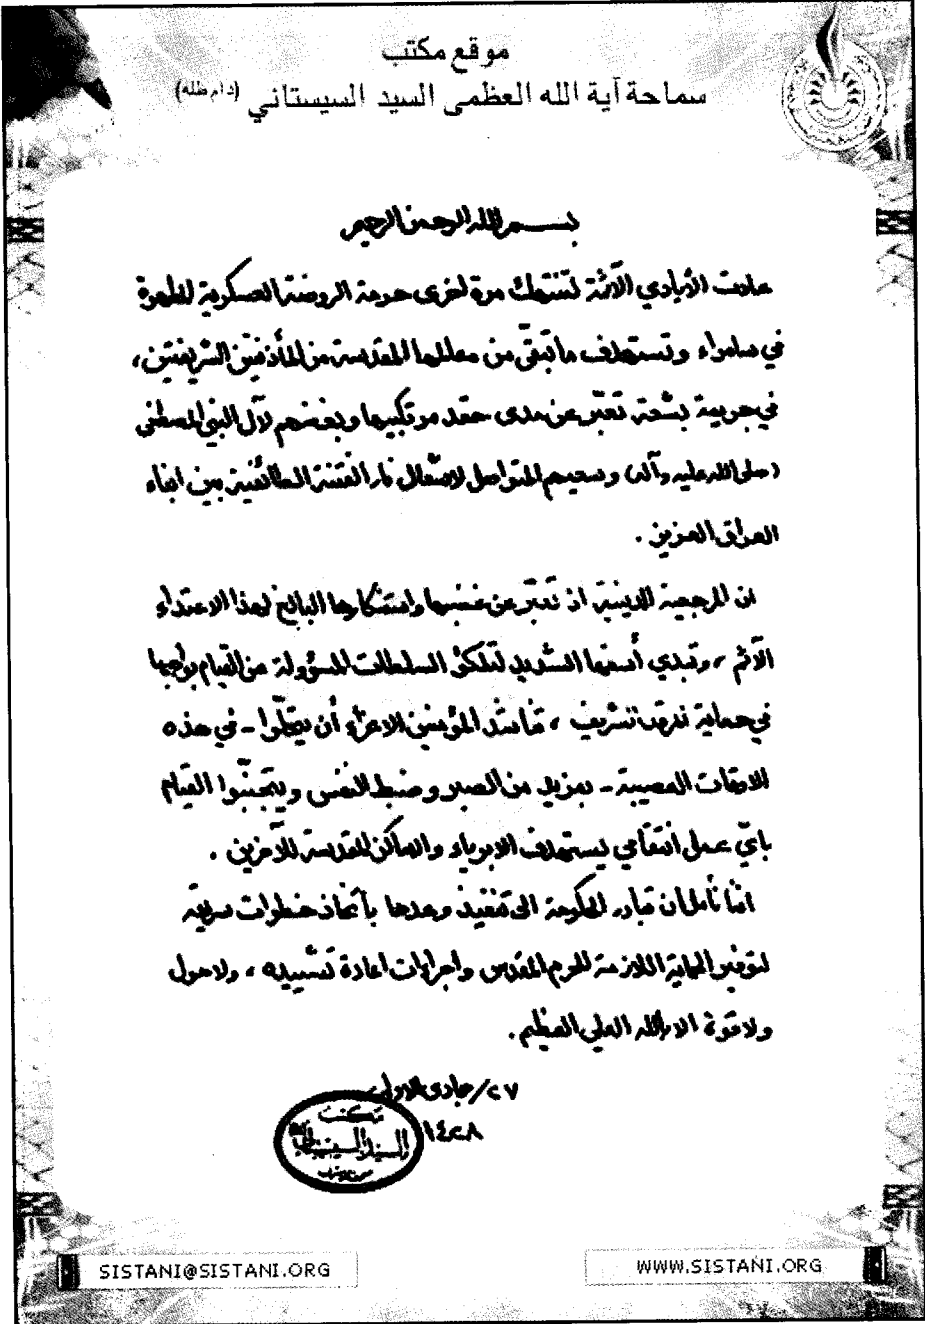 موقع مكتب
سماحة آية الله العظمى السيد السيستاني (دام ظله)
بسم الله الرحمن الرحيم
عادت الأيادي الآثمة لتنتهك مرة اخرى حرمة الروضة العسكرية المطهرة
في سامراء وتستهدف ما تبقّى من معالمها المقدسة من المأذنتين الشريفتين،
في جريمة بشعة تعبّر عن مدى حقد مرتكبيها وبغضهم لآل النبي المصطفى
(صلى الله عليه وآله) وسعيهم المتواصل لاشعال نار الفتنة الطائفية بين ابناء
العراق العزيز.
ان المرجعية الدينية اذ تعبّر عن غضبها واستنكارها البالغ لهذا الاعتداء
الآثم، وتبدي أسفها الشديد لتلكؤ السلطات المسؤولة عن القيام بواجبها
في حماية الشريف، تناشد المؤمنين الاعزّاء أن يتحلّوا - في هذه
الاوقات العصيبة - بمزيد من الصبر وضبط النفس ويتجنّبوا القيام
بايّ عمل انتقامي يستهدف الابرياء والاماكن المقدسة للآخرين.
اننا نأمل ان تبادر الحكومة الى تنفيذ وعدها باتّخاذ خطوات سريعة
لتوفير الحماية اللازمة للحرم المقدس واجراءات اعادة تشييده، ولا حول
ولا قوة الا بالله العلي العظيم.
٢٧/جمادى الاولى
١٤٢٨
مكتب
السيد السيستاني
SISTANI@SISTANI.ORG
WWW.SISTANI.ORG